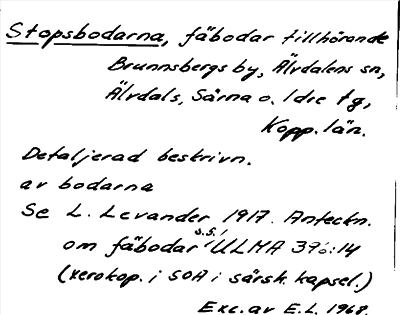 Stopsbodarna, fäbodar tillhörande
Brunnsbergs by, Älvdalens sn,
Älvdals, Särna o. Idre tg,
Kopp. län.
Detaljerad beskrivn.
av bodarna
Se L. Levander 1917. Anteckn.
om fäbodar s.s! ULMA 396:14
(xerokop. i SOA i särsk. kapsel.)
Exc. av E.L. 1968.